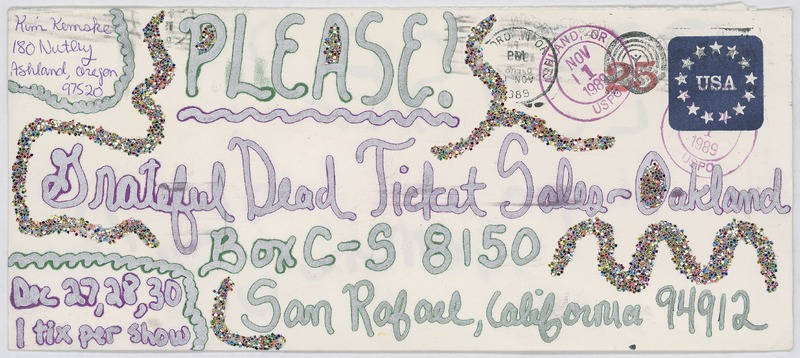 Kim Kemske
180 Nutley
Ashland, oregon
97520
PLEASE!
PM
1989
ASHLAND, OR
NOV
1
1989
USPO
25
USA
1
1989
USPO
Grateful Dead Ticket Sales-Oakland
Box C-S 8150
San Rafael, California 94912
Dec 27, 28, 30
1 tix per show